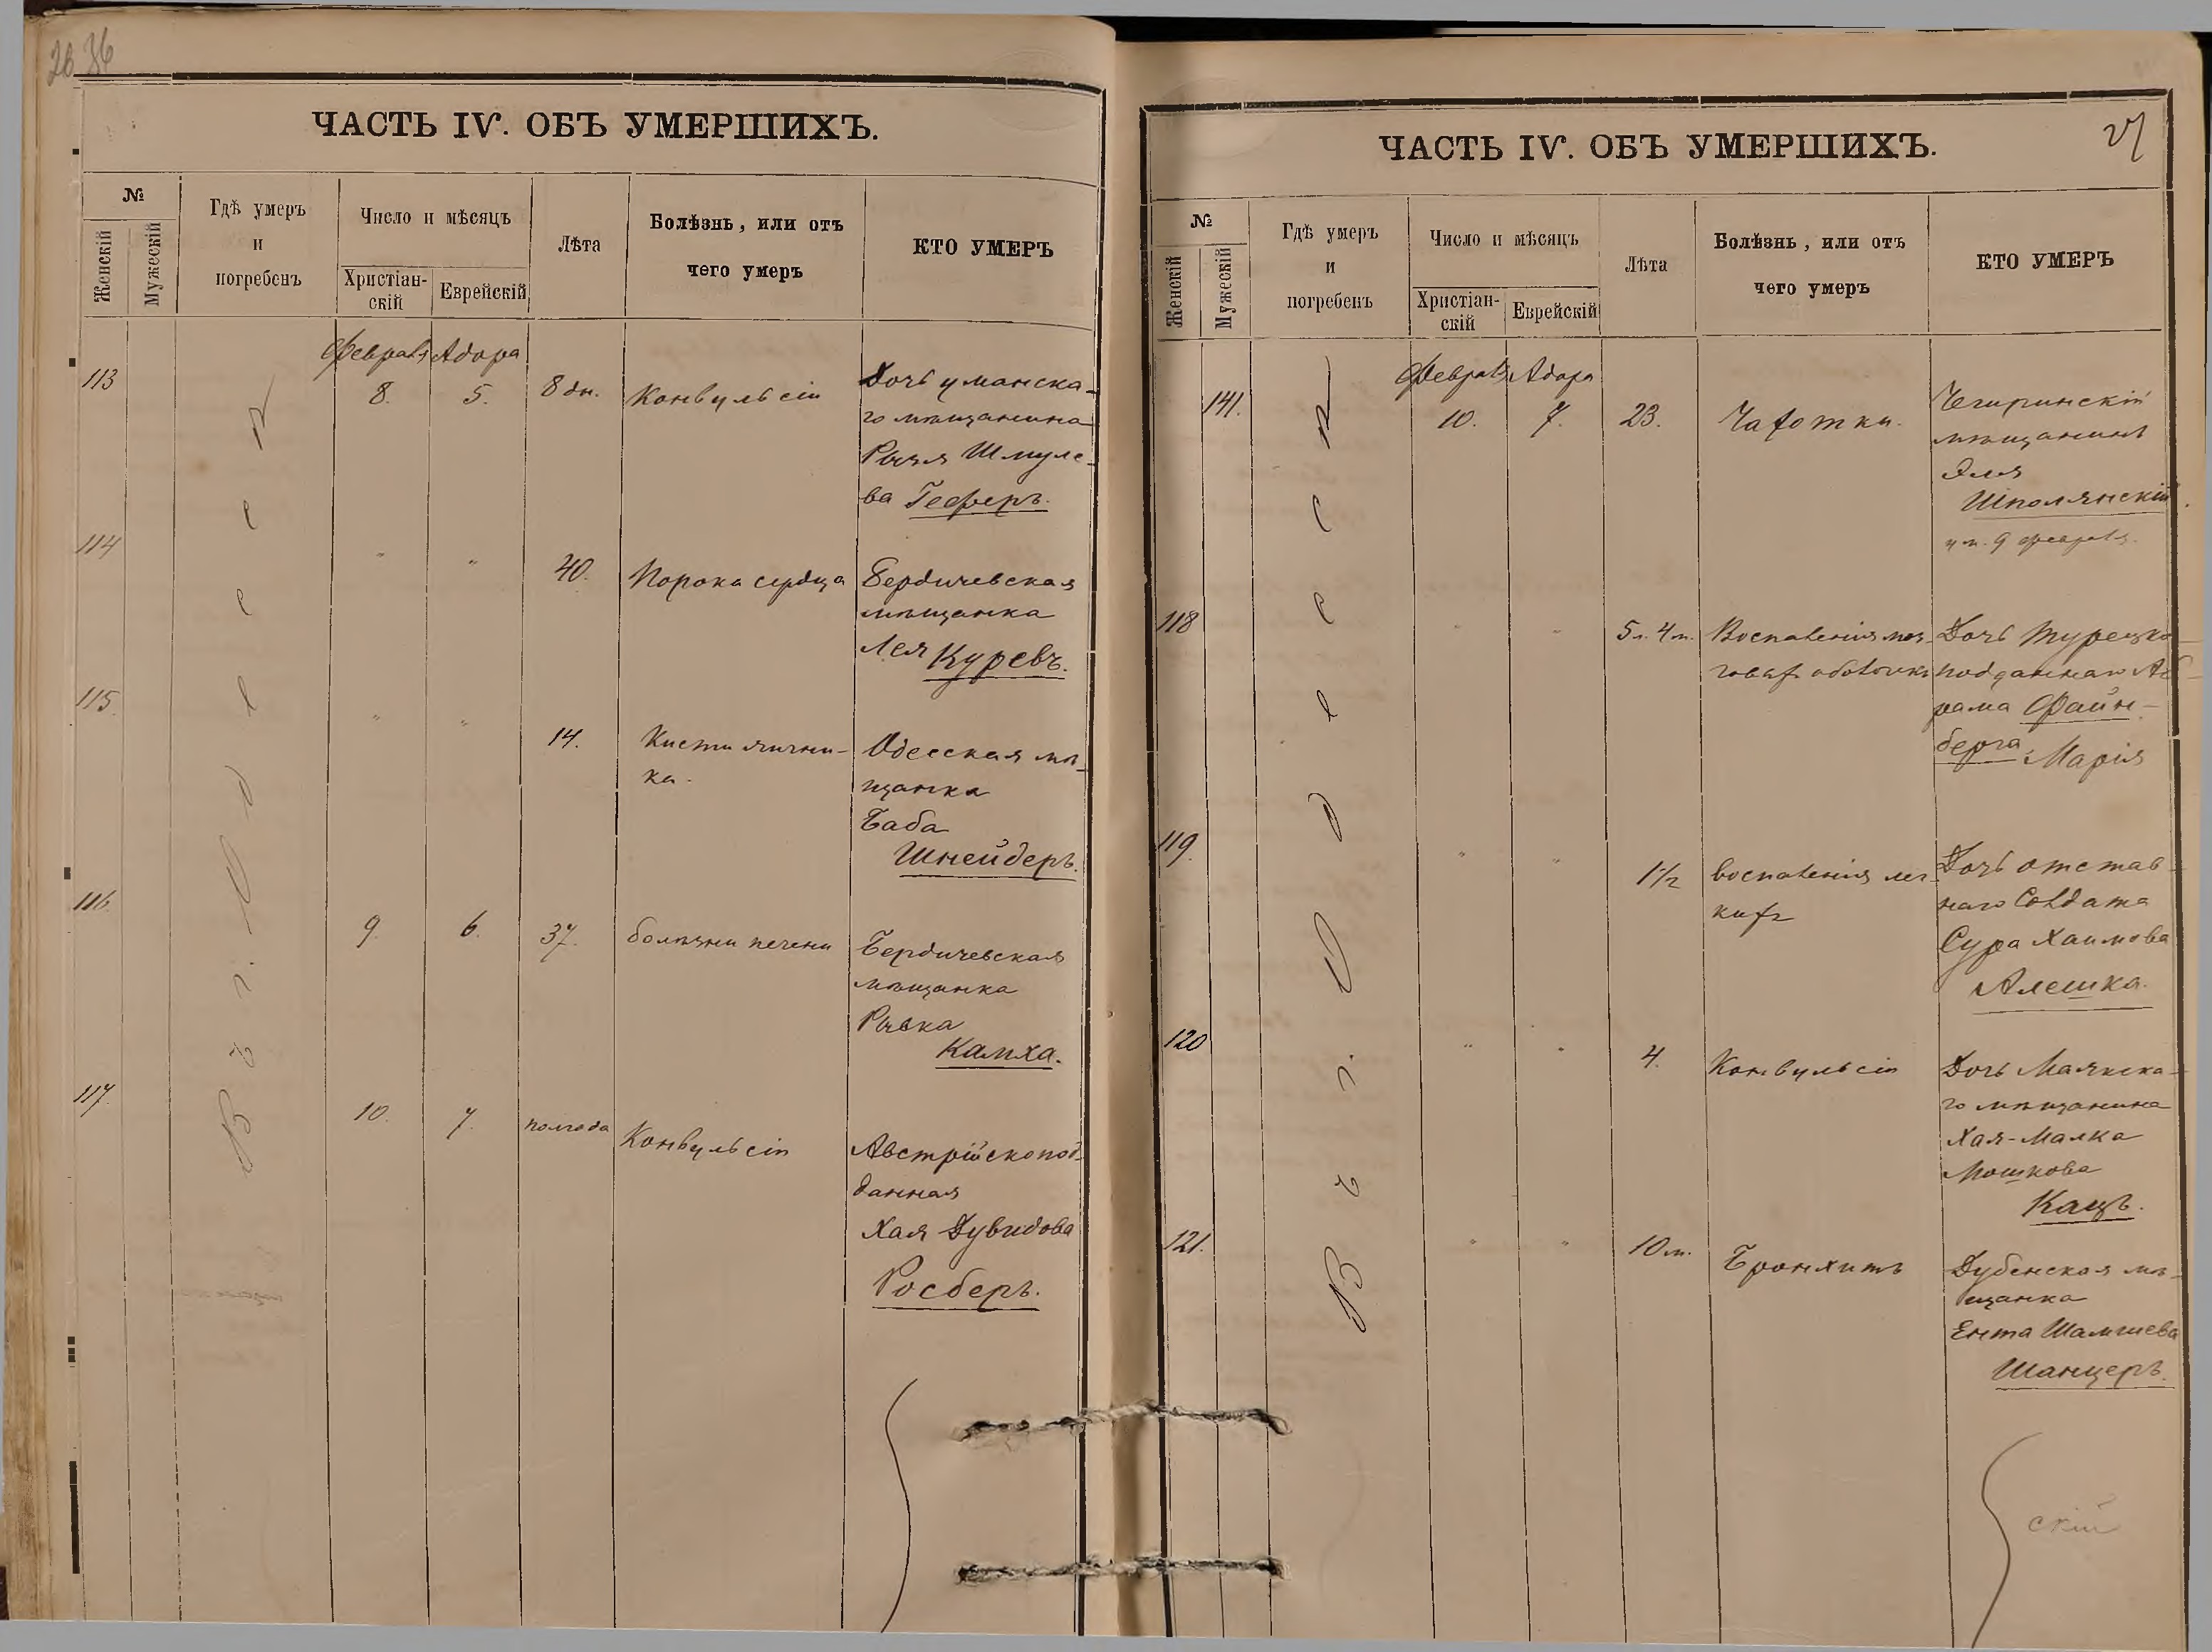 26 36
ЧАСТЬ IV. ОБЪ УМЕРШИХЪ.
№
Женскій
Мужескій
Гдѣ умеръ
и
погребенъ
Число и мѣсяцъ
Христіан-
скій
Еврейскій
Лѣта
Болѣзнь, или отъ
чего умеръ
КТО УМЕРЪ
Въ г. Одессѣ
Февраля Адора
113
8.
5.
8 дн.
Конвульсіи
Дочь уманска-
го мѣщанина
Рыся Шмуле-
ва Геферъ.
114
"
"
40.
Порока сердца
Бердичевская
мѣщанка
Лея Куревъ.
115.
"
"
14.
Кисти яични-
ка.
Одесская мѣ-
щанка
Баба
Шнейдеръ.
116
9.
6.
37.
болѣзни печени
Бердичевская
мѣщанка
Рывка
Камха.
117.
10.
7.
полгода
Конвульсіи
Австрійскопод-
данная
Хая Дувидова
Росберъ.
27
ЧАСТЬ IV. ОБЪ УМЕРШИХЪ.
№
Женскій
Мужескій
Гдѣ умеръ
и
погребенъ
Число и мѣсяцъ
Христіан-
скій
Еврейскій
Лѣта
Болѣзнь, или отъ
чего умеръ
КТО УМЕРЪ
Въ г. Одессѣ
Февраля Адора
141.
10.
7.
23.
Чахотки.
Чигиринскій
мѣщанинъ
Эля
Шполянскій
ум. 9 февраля.
118
"
"
5 л. 4 м.
Воспаленія моз-
говых оболочкъ
Дочь турецко-
подданнаго Аб-
рама Файн-
берга, Марія
119.
"
"
1 1/2
воспаленія лег-
ких
Дочь отстав-
наго Солдата
Сура Хаимова
Алешка.
120
"
"
4.
Конвульсіи
Дочь Маякска-
го мѣщанина
Хая-Малка
Мошкова
Кацъ.
121.
"
"
10 м.
Бронхитъ
Дубенская мѣ-
щанка
Ента Шамшева
Шанцеръ.
скій